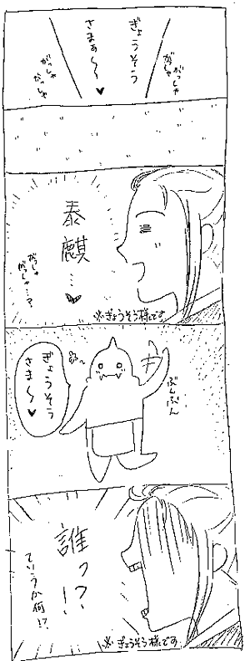 ぎょうそう
さまぁ～～♥
がっしゃ
がっしゃ
がっしゃ
がっしゃ
泰麒…♥
がっしゃ
がっしゃ…?
※ぎょうそう様です
ぎょうそう
さま～♥
ぶんぶん
誰っ!?
ていうか何!?
※ぎょうそう様です